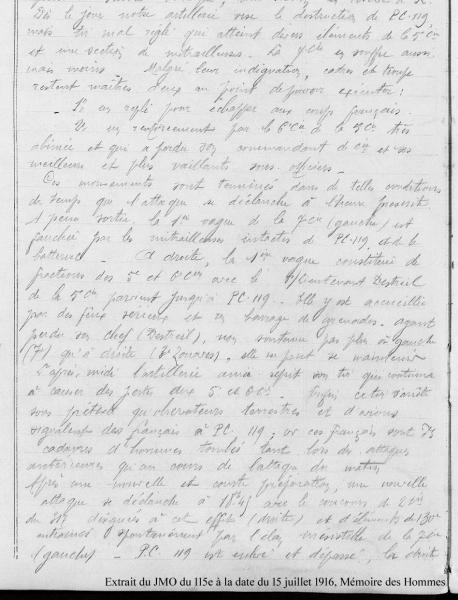 Dès le jour notre artillerie vise la destruction de P.C. 119
mais tir mal réglé qui atteint divers éléments de la 5e Cie
et une section de mitrailleuses. La 7e Cie en souffre aussi
mais moins. Malgré leur indignation, cadres et troupe
restent maîtres d'eux au point de pouvoir exécuter :
- 1° un repli pour échapper aux coups français.
2° un renforcement par la 6e Cie de la 5e Cie très
abîmée et qui a perdu son commandant de Cie et ses
meilleurs et plus vaillants sous-officiers.
Ces mouvements sont terminés dans de telles conditions
de temps que l'attaque se déclanche à l'heure
A peine sortie, la 1ère vague de la 7e Cie (gauche) est
fauchée par les mitrailleuses intactes de P.C. 119, et de la
batterie - A droite, la 1ère vague constituée de
fractions des 5 et 6e Cies avec le S/Lieutenant Destreil
de la 5e Cie parvient jusqu'à P.C. 119. Elle y est accueillie
par des feux et un barrage de grenades. ayant
perdu son chef (Destreil), non soutenue pas plus à gauche
(7e) qu'à droite (6e Zouaves). elle ne peut se maintenir
L'après-midi l'artillerie amie reprit son tir qui continua
à causer des pertes aux 5 et 6e Cies.
sous prétexte qu'observateurs terrestres et d'avions
signalent des français à P.C. 119. or ces français sont 73
cadavres d'hommes tombés tant lors des attaques
antérieures qu'au cours de l'attaque du matin.
Après une nouvelle et courte préparation, une nouvelle
attaque se déclanche à avec le concours de 2 Cies
du dirigées à cet effet (droite) et d'éléments du 130e
entraînés spontanément par l'élan irrésistible de la 7e Cie
(gauche) - P.C. 119 est enlevé et dépassé, la droite
Extrait du JMO du 115e à la date du 15 juillet 1916, Mémoire des Hommes